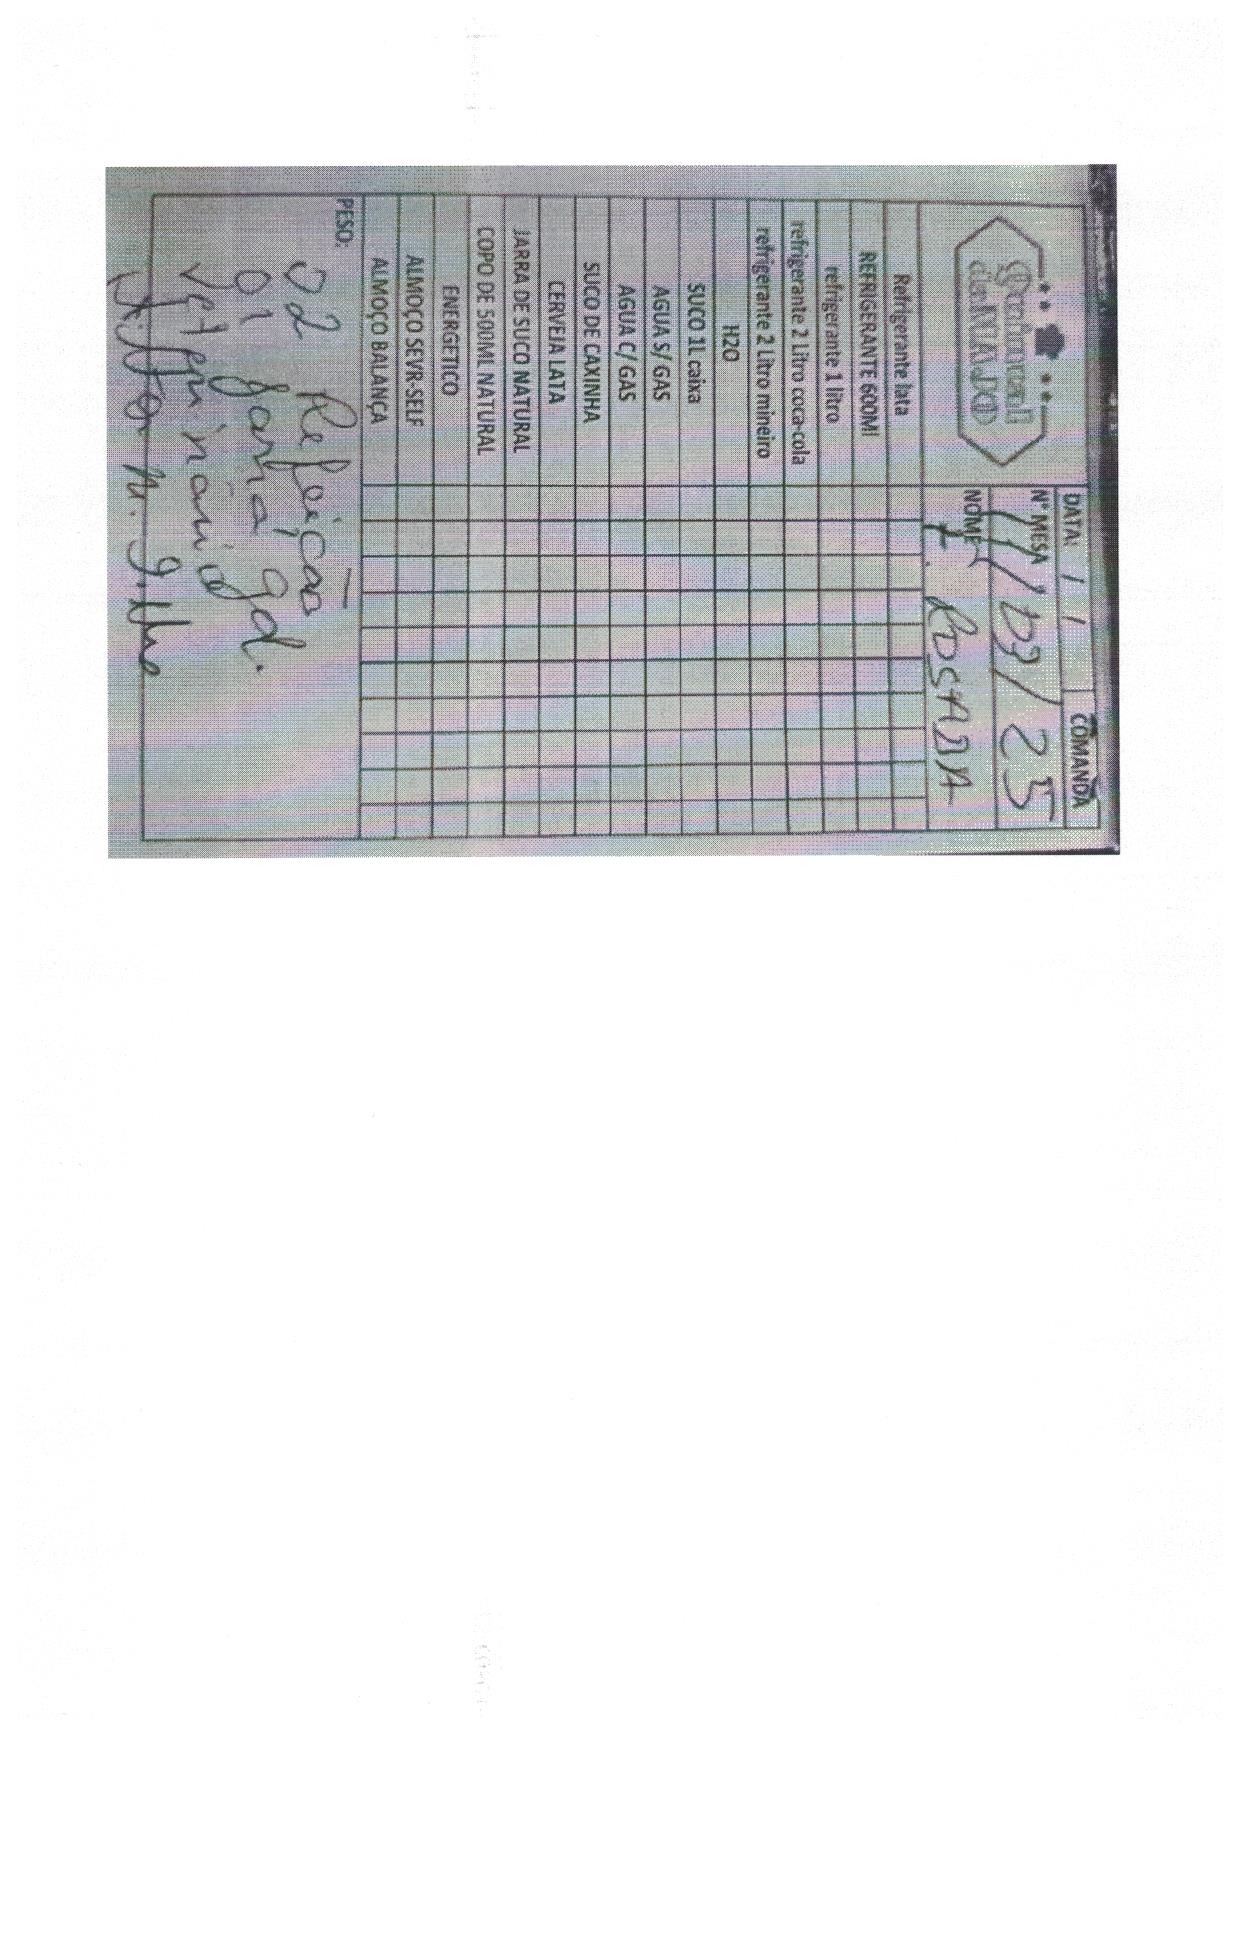 Quintal
da NAJO
DATA: / / COMANDA
N° MESA
11/03/25
NOME
ROSADA
Refrigerante lata
REFRIGERANTE 600Ml
refrigerante 1 litro
refrigerante 2 Litro coca-cola
refrigerante 2 Litro mineiro
H2O
SUCO 1L caixa
AGUA S/ GAS
AGUA C/ GAS
SUCO DE CAXINHA
CERVEJA LATA
JARRA DE SUCO NATURAL
COPO DE 500ML NATURAL
ENERGETICO
ALMOÇO SEVR-SELF
ALMOÇO BALANÇA
PESO:
02 Refeição
01 garrafa gd.
Veterinário